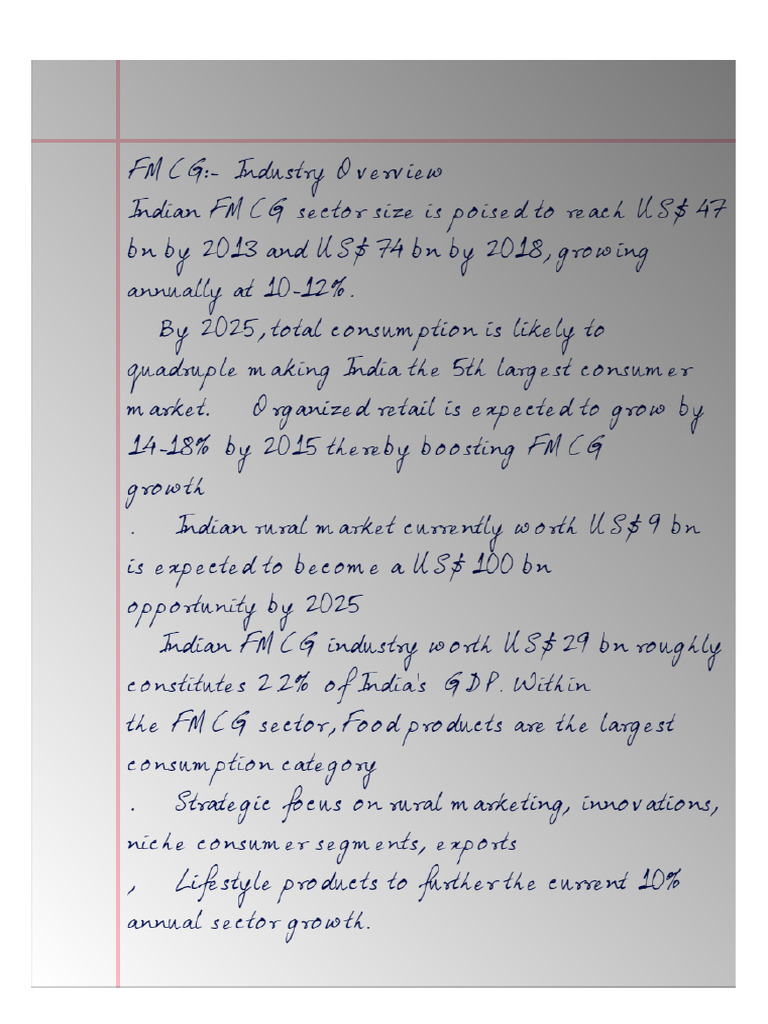 FMCG:- Industry Overview
Indian FMCG sector size is poised to reach US$ 47
bn by 2013 and US$ 74 bn by 2018, growing
annually at 10-12%.
By 2025, total consumption is likely to
quadruple making India the 5th largest consumer
market. Organized retail is expected to grow by
14-18% by 2015 thereby boosting FMCG
growth
. Indian rural market currently worth US$ 9 bn
is expected to become a US$ 100 bn
opportunity by 2025
Indian FMCG industry worth US$ 29 bn roughly
constitutes 22% of India's GDP. Within
the FMCG sector, Food products are the largest
consumption category
. Strategic focus on rural marketing, innovations,
niche consumer segments, exports
, Lifestyle products to further the current 10%
annual sector growth.